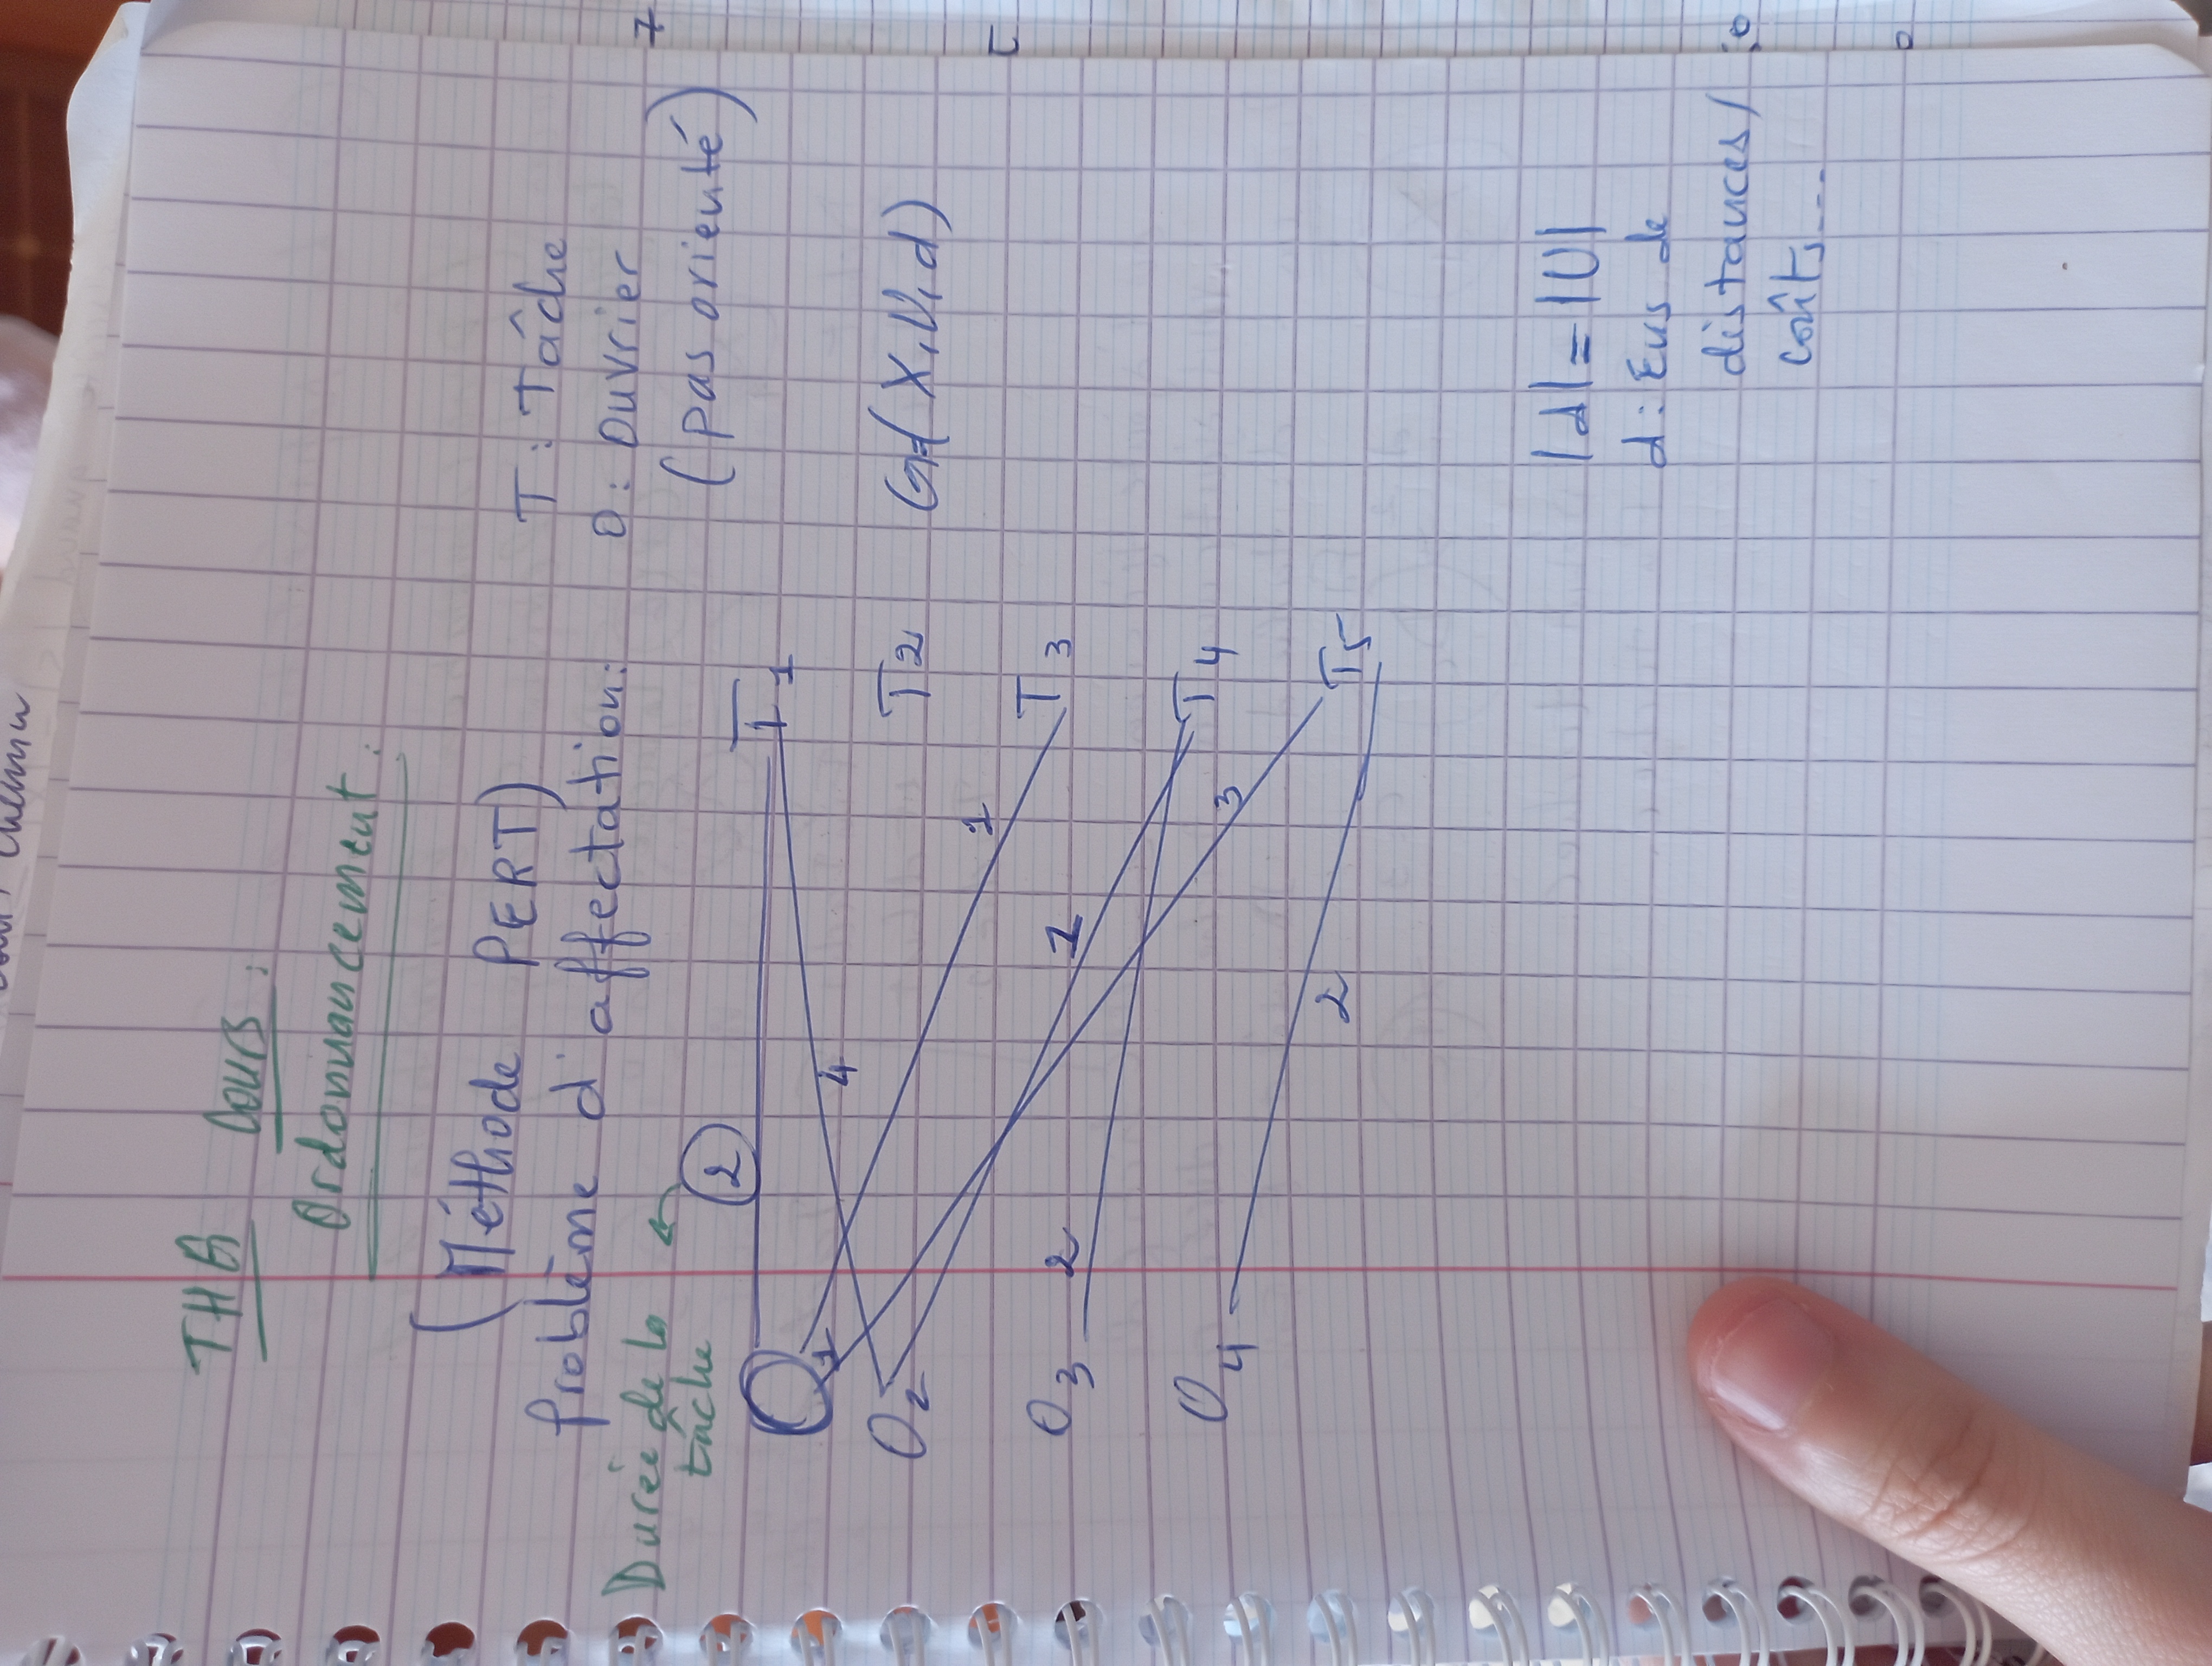 THG Cours:
Ordonnancement:
(Méthode PERT)
Problème d'affectation:
T: Tâche
O: Ouvrier
(pas orienté)
Durée de la
tâche
2
O1
T1
4
O2
T2
G=(X,U,d)
1
O3
2
1
T3
O4
T4
3
2
T5
|d|=|U|
d: Ens de
distances/
coûts...